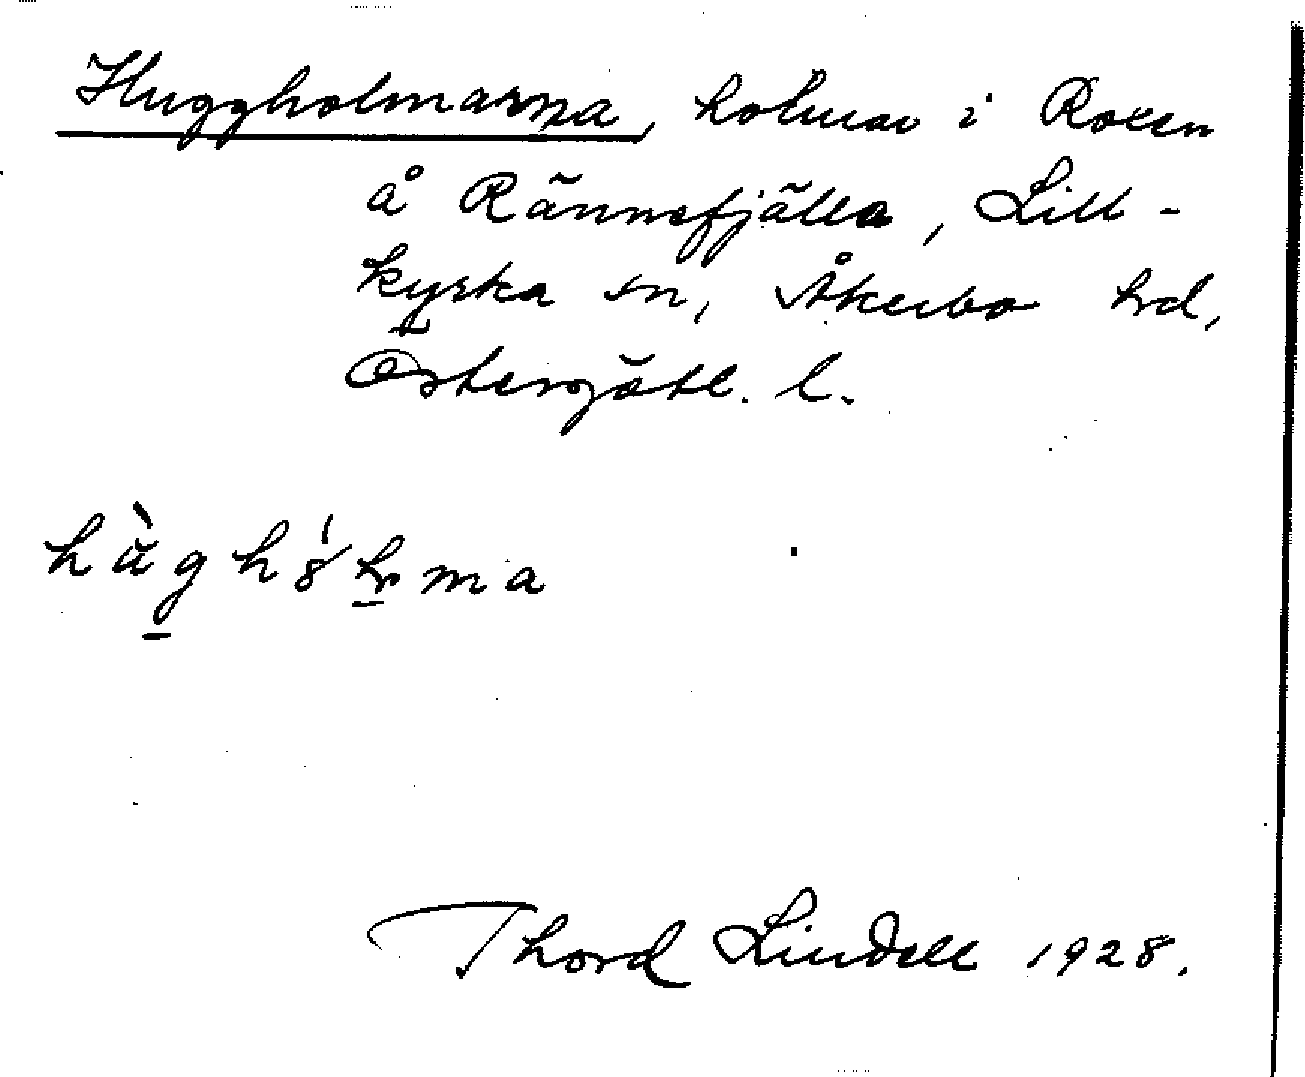 Huggholmarna, holmar i Roxen
å Rännefjälla, Lill-
kyrka sn, Åkerbo hd,
Östergötl. l.
Thord Lindell 1928.